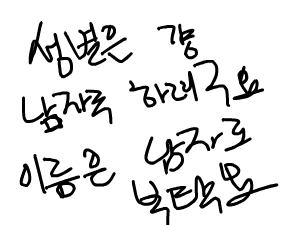 성별은 걍
남자로 하래구요
이름은 남자로
부탁요